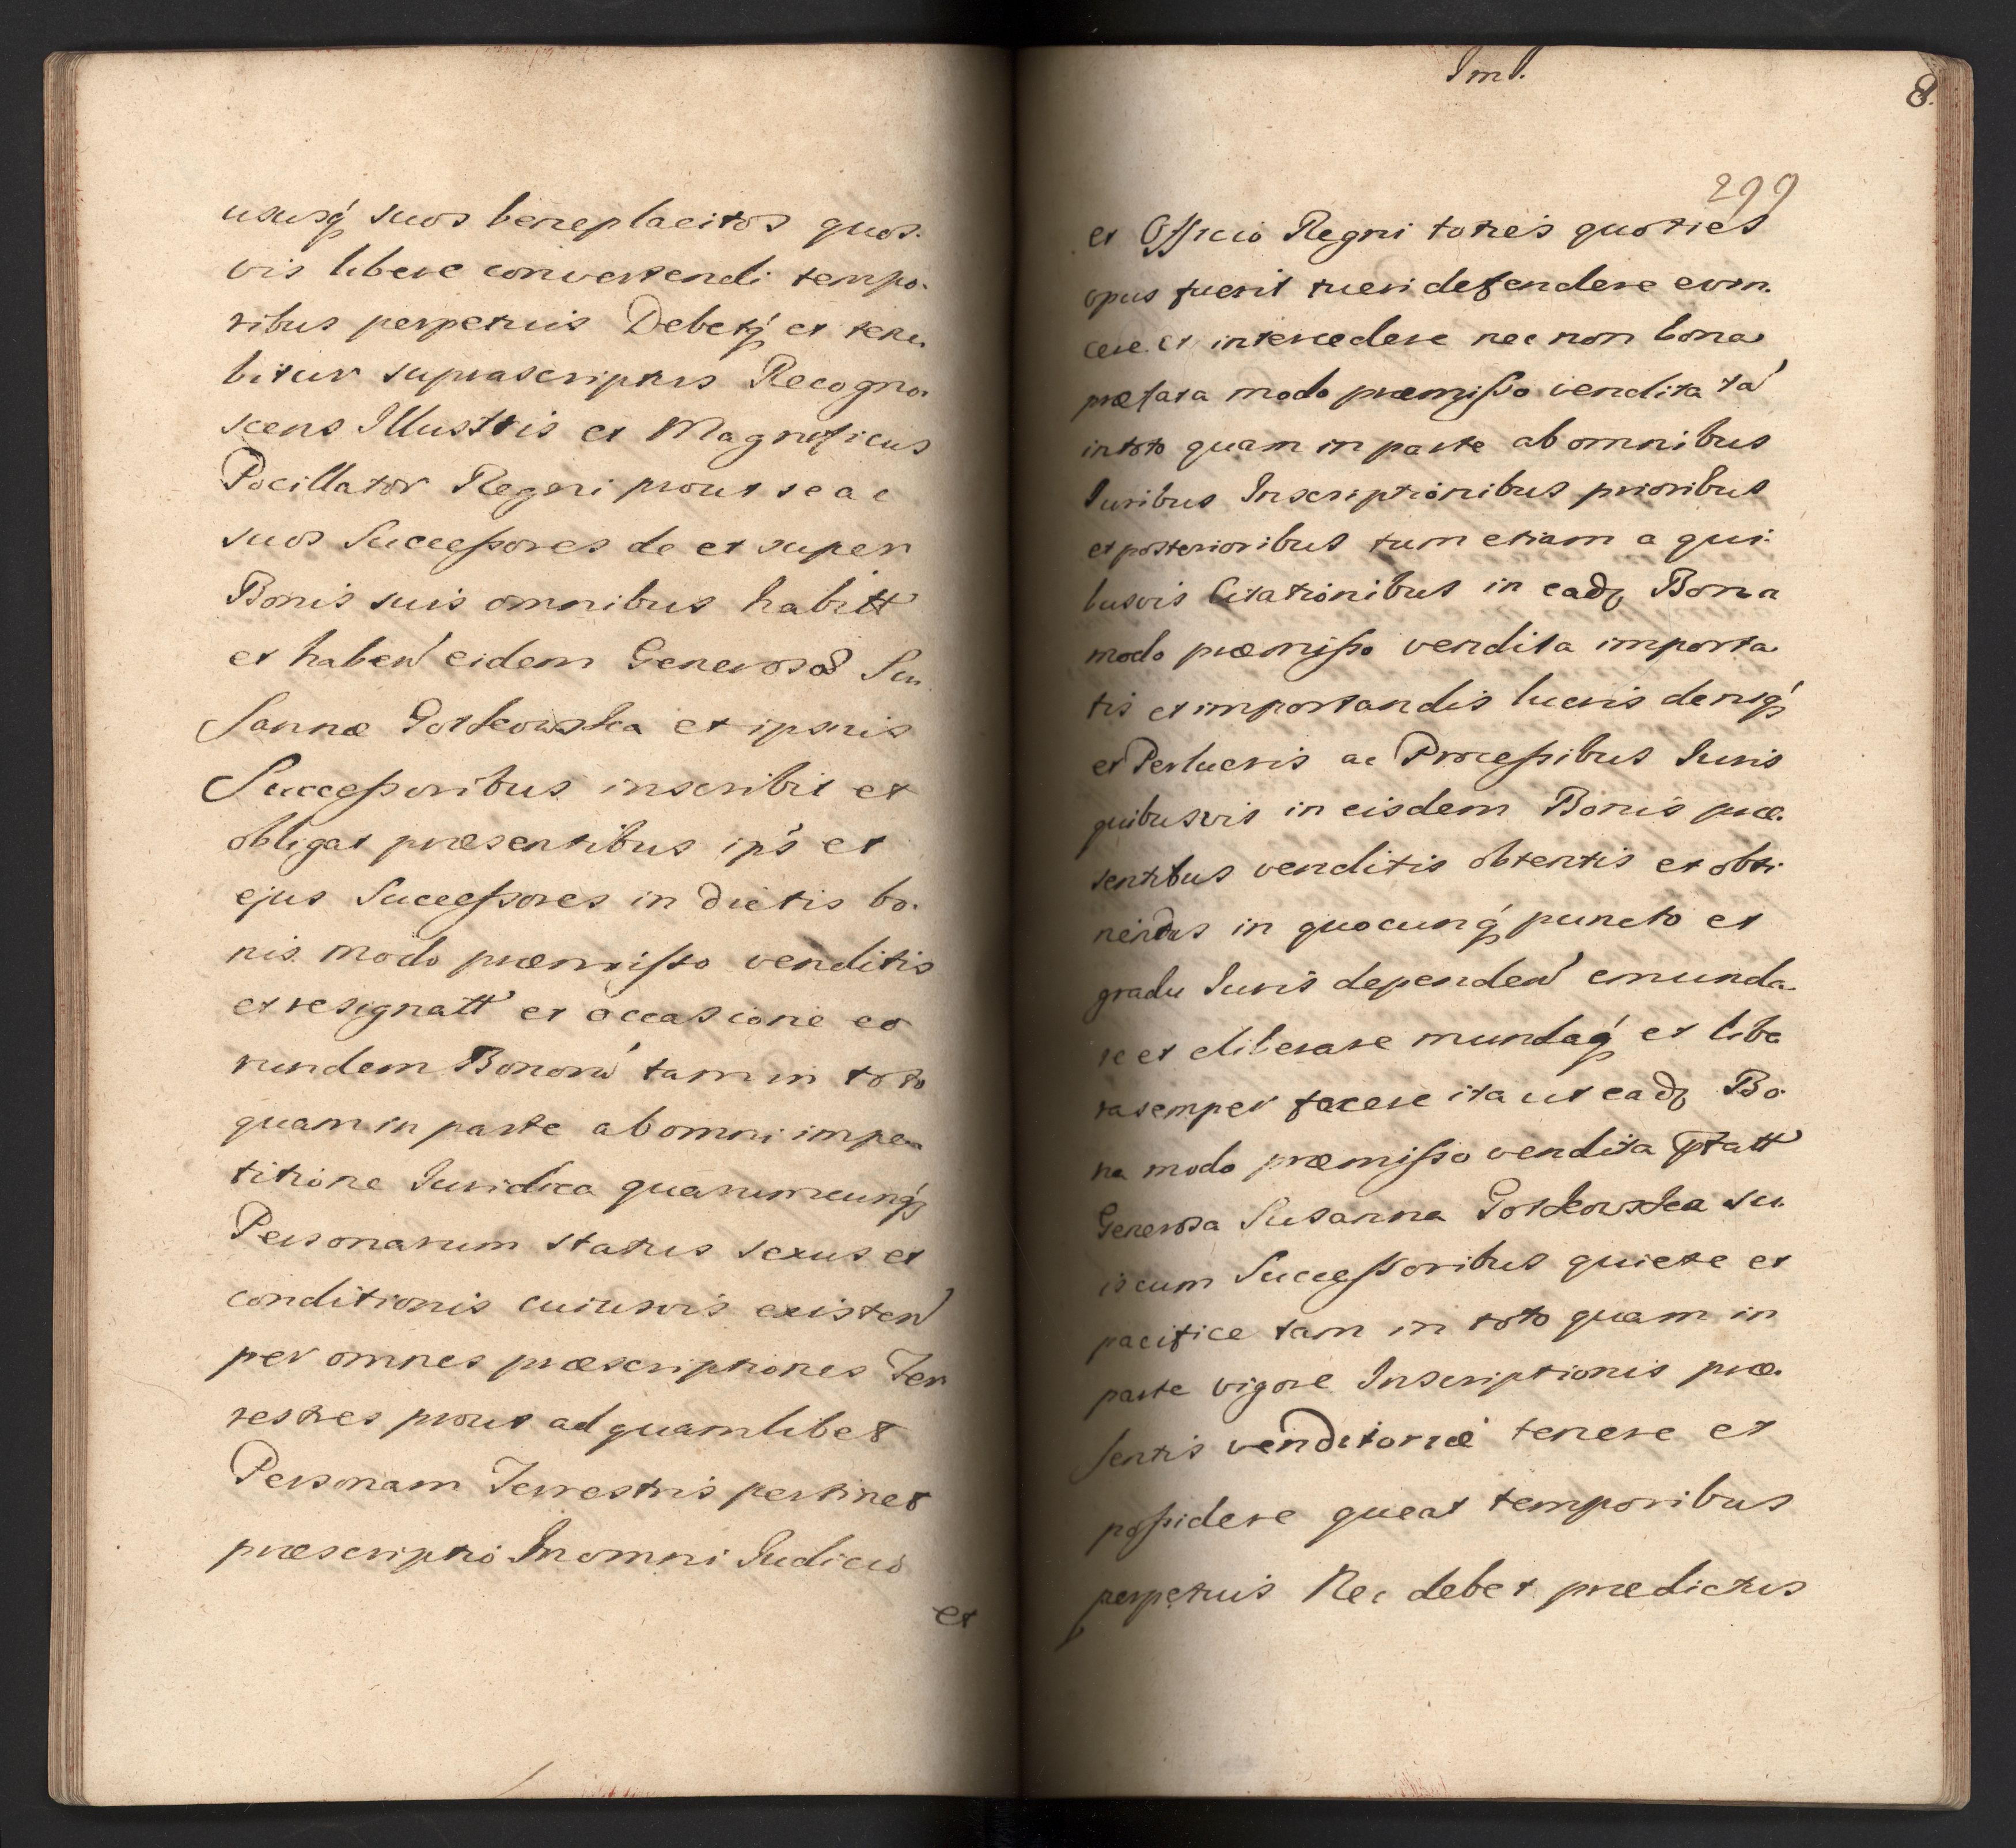 ususq́ suos beneplacitos quos-
vis libere convertendi tempo-
ribus perpetuis Debetq́ et tene
bitur suprascriptus Recogno-
scens Illustris et Magnificus
Pocillator Regni prout se ac
suos Successores de et super
Bonis suis omnibus habitt
et haben̄ eidem Generosæ Su
Sannæ Gorskowska et ipsius
Successoribus inscribit et
obligat præsentibus ips̄ et
ejus Successores in dictis bo-
nis modo præmisso venditis
et resignatt et occasione eo
rundem Bonorū tam in toto
quam in parte ab omni impe-
titione Juridica quarumcunq́
Personarum status sexus et
conditionis cuiusvis existen̄
per omnes præscriptiones Ter
restres prout ad quamlibet
Personam Terrestris pertinet
præscriptio In omni Judicio
et
Iml.
8.
299
et Officio Regni toties quoties
opus fuerit tueri defendere evin-
cere et intercedere nec non bona
præfata modo præmisso vendita tā
in toto quam in parte ab omnibus
Juribus Inscriptionibus prioribus
et posterioribus tum etiam a qui-
busvis Citationibus in eadȝ Bona
modo præmisso vendita importa
tis et importandis lucris deniq́
et Perlucris ac Processibus Juris
quibusvis in eisdem Bonis præ-
sentibus venditis obtentis et obti
nendis in quocunq́ puncto et
gradu Juris dependen̄ emunda-
re et eliberare mundaq́ et libe
ra semper facere ita ut eadȝ Bo-
na modo præmisso vendita p̄fatt
Generosa Susanna Gorskowska su-
is cum Successoribus quiete et
pacifice tam in toto quam in
parte vigore Inscriptionis præ-
sentis venditoriæ tenere et
possidere queat temporibus
perpetuis Nec debet prædictus